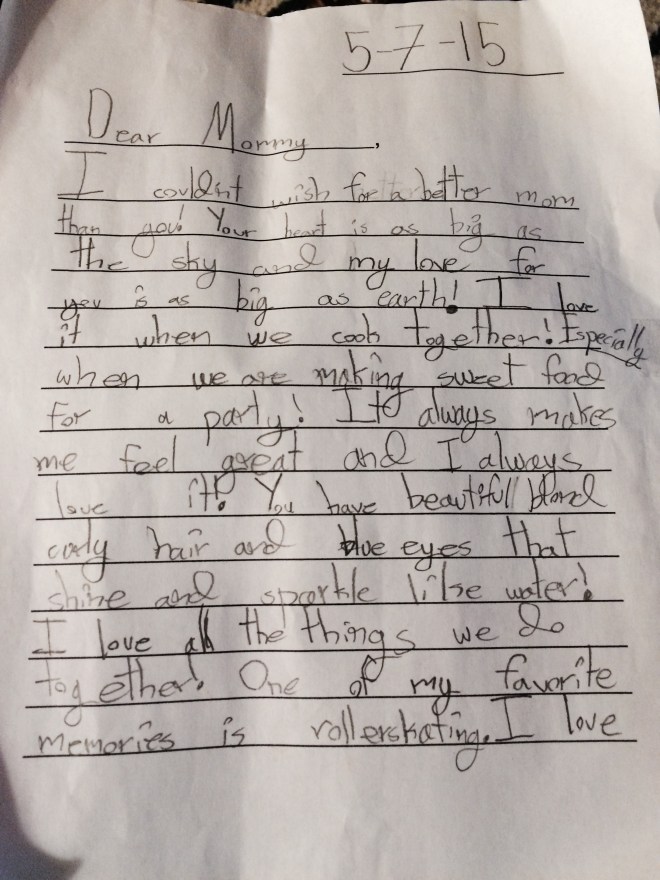 5-7-15
Dear Mommy,
I couldnt wish for a better mom
than you! Your heart is as big as
the sky and my love for
you is as big as earth! I love
it when we cook together! Especially
when we are making sweet food
for a party! It always makes
me feel great and I always
love it! You have beautifull blond
curly hair and blue eyes that
shine and sparkle like water!
I love all the things we do
together! One of my favorite
memories is rollerskating. I love